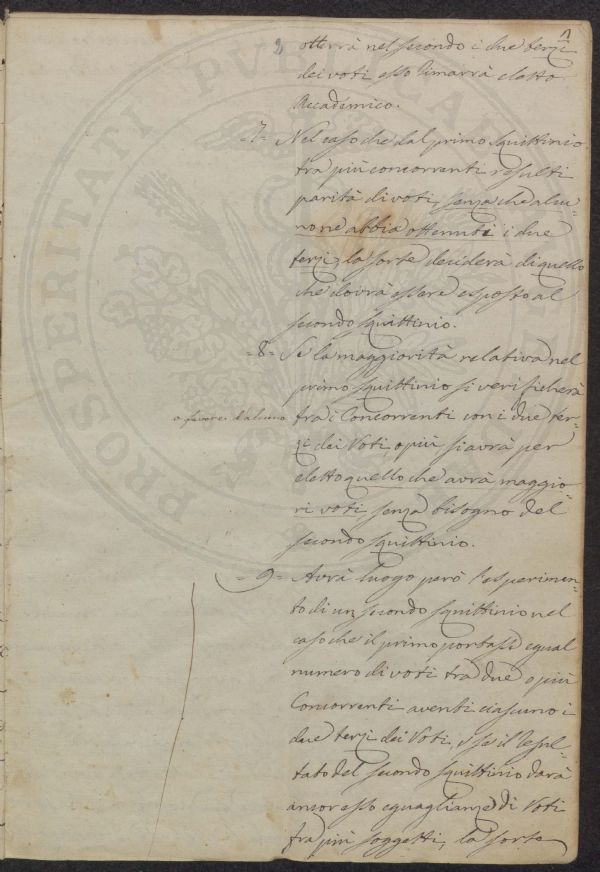 1
otterrà nel secondo i due terzi
dei voti esso rimarrà eletto
Accadémico.
7.= Nel caso che dal primo squittinio
tra più concorrenti resulti
parità di voti, senza che alcu-
no ne abbia ottenuti i due
terzi, la sorte deciderà di quello
che dovrà essere esposto al
secondo squittinio.
=8= Se la maggiorità relativa nel
primo squittinio si verificherà
a favore d'alcuno
trà i Concorrenti con i due ter-
zi dei Voti, o più si avrà per
eletto quello che avrà maggio-
ri voti senza bisogno del
secondo squittinio.
=9= Avrà luogo però l'esperimen-
to di un secondo squittinio nel
caso che il primo portasse egual
numero di voti trà due o più
Concorrenti aventi ciascuno i
due terzi dei Voti, e se il resul-
tato del secondo squittinio darà
ancor esso eguaglianza di Voti
fra più soggetti, la sorte
PROSPERITATI PUBLICAE